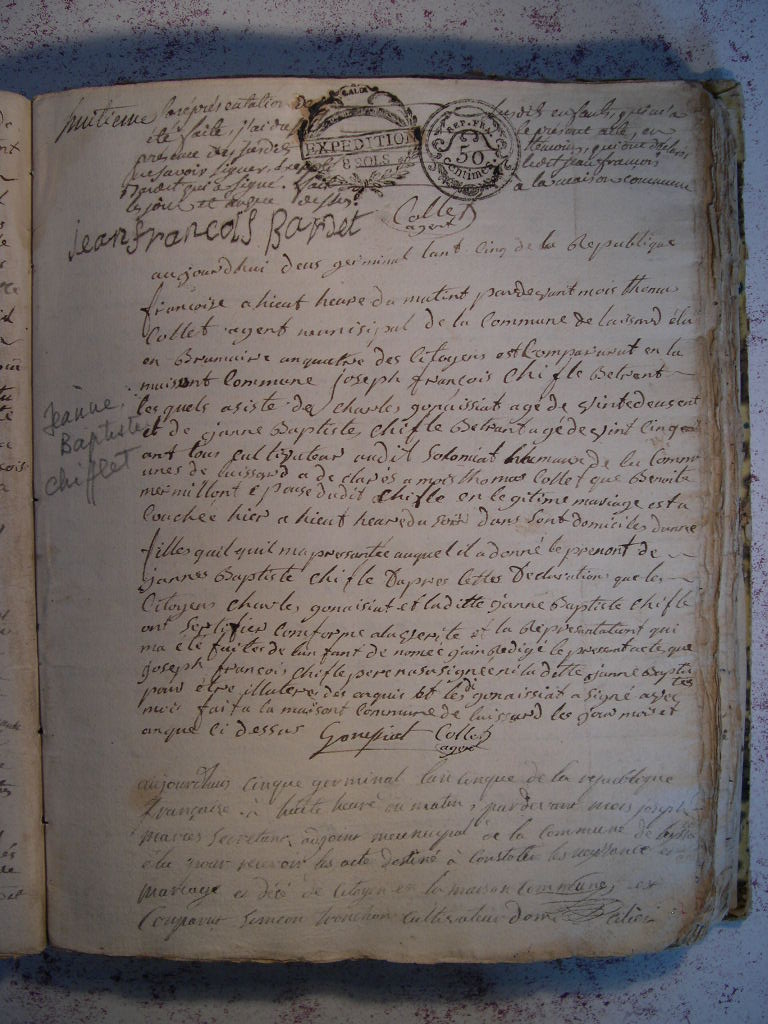 huitieme la représentation de
été faite, j'ai du
presence des susdits
ne savoir signer, 
le jour et anque dessus.
EXPEDITION
8 SOLS
REP. FRA.
50
centimes
susdit enfants, qui m'a
le présent acte, en
temoins, qui ont declaré
ledit jean françois
a la maison commune
Jean francois Bandet
Collet
agent
aujourdhui deus germinal lant cinq de la Republique
francoise a hieut heure du matint pardevant mois thomas
Collet agent municipal de la Commune de laissard élu
en Brumaire anquatre des Citoyens est Comparut en la
maisont Commune joseph françois Chifle
les quels asiste de Charles gonaissiat agé de
et de janne Baptiste Chifle agé de vint Cinq
ant tous cultivateur audit hamaux de la Comm
unes de laissard a de clarés a mois thomas Collet que Benoite
mermillont Epouse dudit Chifle en legitime mariage est a
Couchée hier a hieut heure du soir dans sont domiciles dunne
filles quil qu'il ma pressantée auquel il a donné le prenont de
jannes Baptiste Chifle Dapres Cettes Declarations que les
Citoyens Charles gonaisiat et la ditte janne Baptiste Chifle
ont sertifier comforme a la verite et la Representationt qui
ma été faites de l'anfant de nomée j'ain Redigé le present acte que
joseph françois Chifle pere na su signée ni la ditte janne Baptis
tes
pour étre illiteré de ce requis Et les dt gonaissiat a signé avec
mois fait a la maisont Commune de laissard les jour mois et
anque Ci dessus Gonessiat Collet
agent
Jeanne
Baptiste
Chiflet
aujourdhuis cinque germinal lan cinque de la republique
françoise à huite heure du matin, pardevant mois joseph
maries Secretant adjoint meunicipal de la commune de
élu pour recevoir les acte destiné à Constater les naissance
mariage et décé de Citoyen en la maison Commune, est
Comparut Simeon tronchon Cultivateur